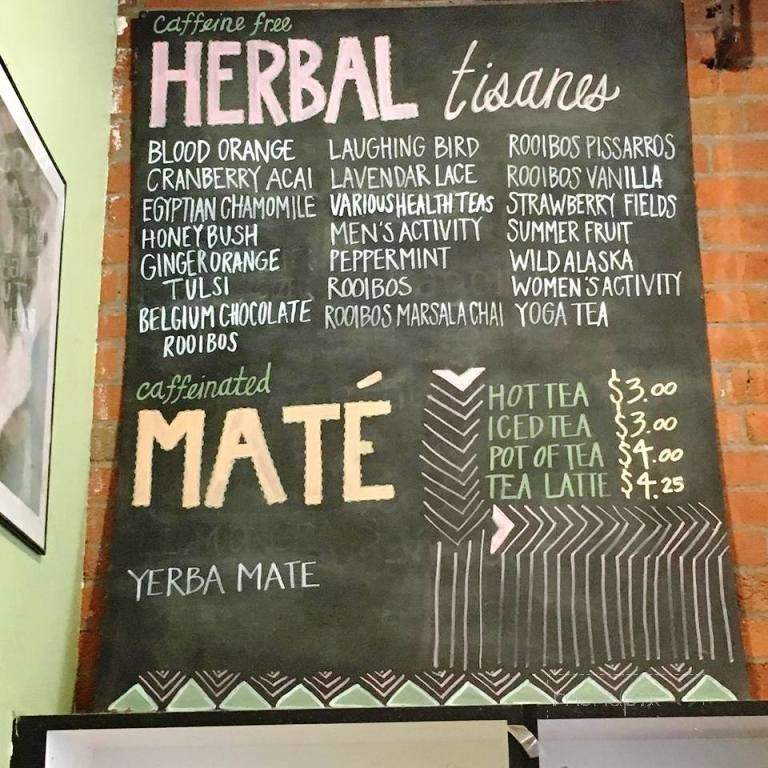 caffeine free
HERBAL tisanes
BLOOD ORANGE
CRANBERRY ACAI
EGYPTIAN CHAMOMILE
HONEYBUSH
GINGER ORANGE
TULSI
BELGIUM CHOCOLATE
ROOIBOS
LAUGHING BIRD
LAVENDAR LACE
VARIOUS HEALTH TEAS
MEN'S ACTIVITY
PEPPERMINT
ROOIBOS
ROOIBOS MARSALA CHAI
ROOIBOS PISSARROS
ROOIBOS VANILLA
STRAWBERRY FIELDS
SUMMER FRUIT
WILD ALASKA
WOMEN'S ACTIVITY
YOGA TEA
caffeinated
MATÉ
YERBA MATE
HOT TEA $3.00
ICED TEA $3.00
POT OF TEA $4.00
TEA LATTE $4.25